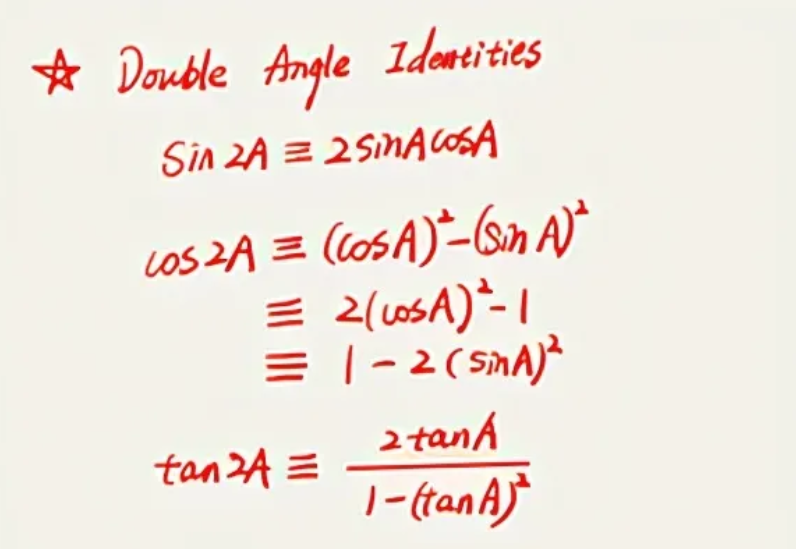 ☆ Double Angle Identities
Sin 2A ≡ 2 sinA cosA
cos 2A ≡ (cosA)² - (sin A)²
≡ 2(cosA)² - 1
≡ 1 - 2(sinA)²
tan 2A ≡ \frac{2 tanA}{1 - (tanA)²}